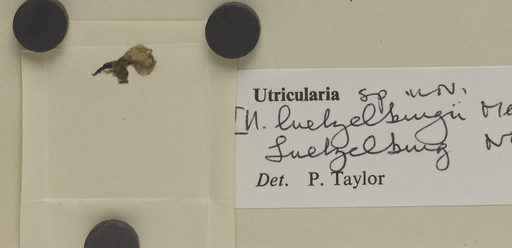 Utricularia sp. nov.
[U. luetzelburgii Me
Luetzelburg N
Det. P. Taylor